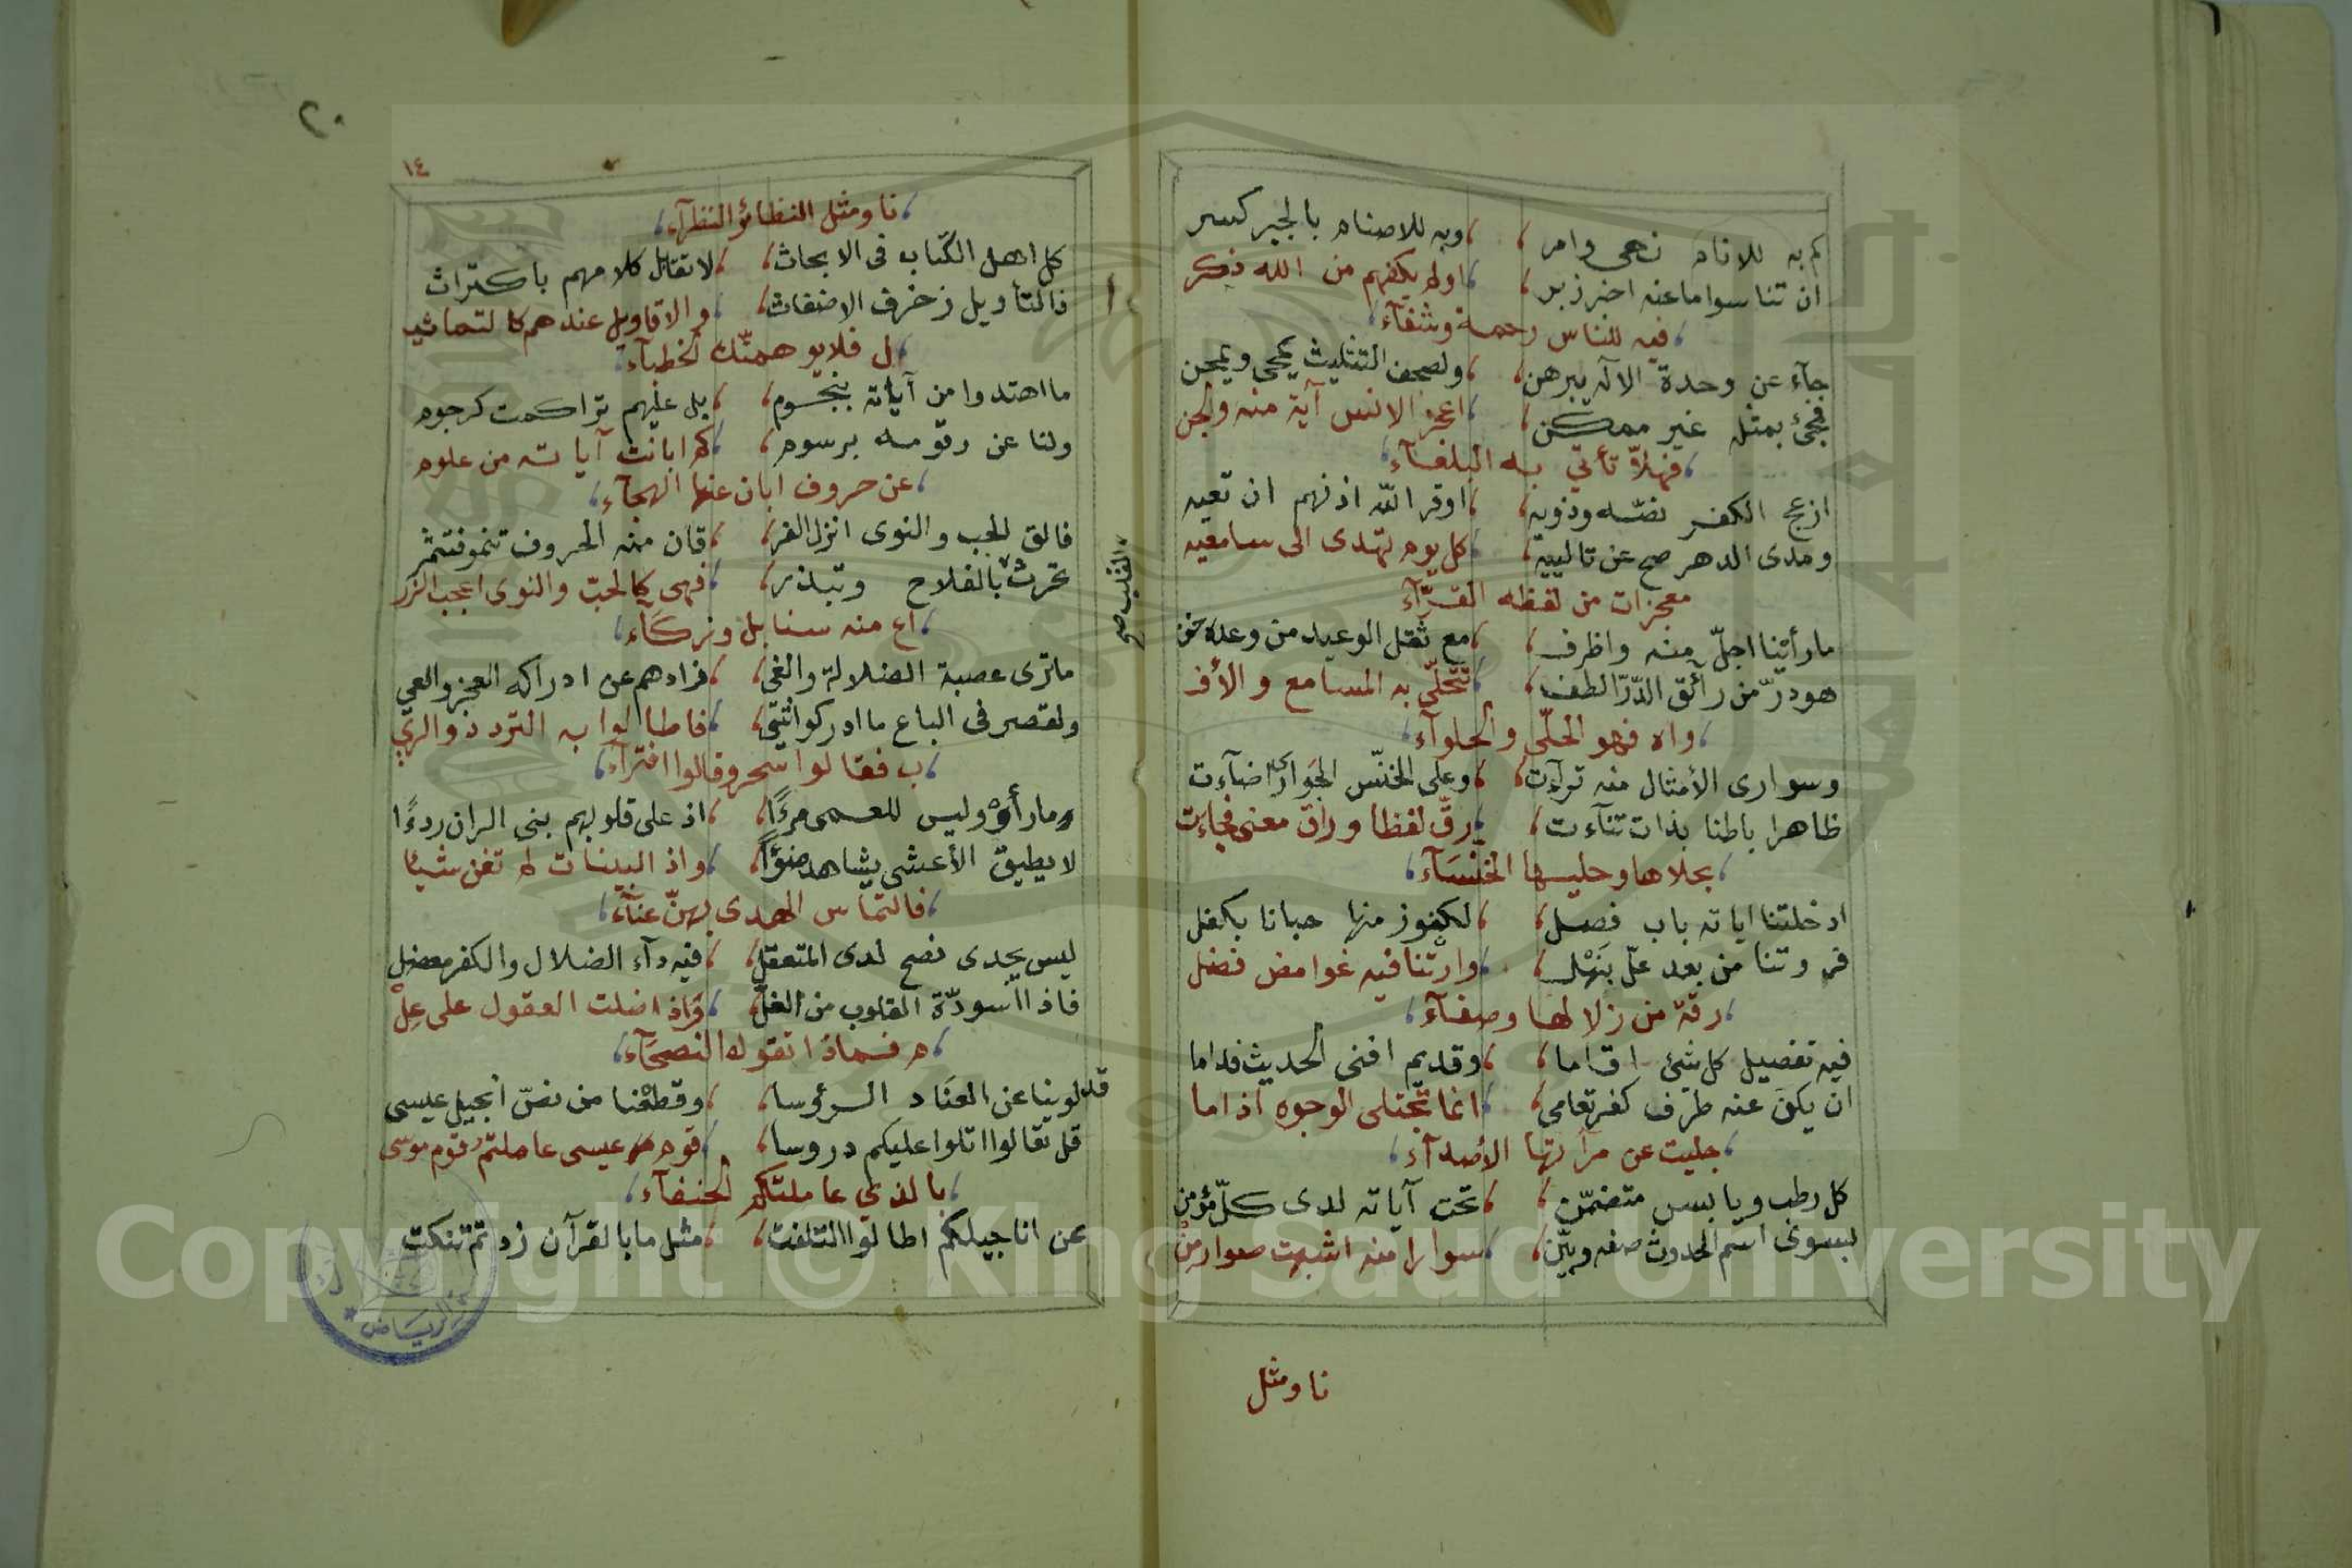 كم به للانام نهى وامر ، وبه للاصنام بالجبر كسر
ان تناسوا ما عنه اخبر زبر ، اولم يكفهم من الله ذكر
فيه للناس رحمة وشفآء
جآء عن وحدة الاله يبرهن ، ولصحف التثليث يمحى ويمحن
فجئ بمثل غير ممكن ، اعجز الانس آية منه والجن
فهلاّ تأتي به البلغآء
ازعج الكفر نصّه وذويه ، اوقر اللّه اذنهم ان تعيه
ومدى الدهر صح عن تالييه ، كل يوم تهدى الى سامعيه
معجزات من لفظه القرّآء
ما رأينا اجلّ منه واظرف ، مع ثقل الوعيد من وعده خف
هو درّ من رأئق الدّرّ الطف ، تتحلّى به المسامع والأف
واه فهو الحلّى والحلوآء
وسوارى الأمثال منه ترآءت ، وعلى الخنّس الجوار اضآءت
ظاهرا باطنا بذات تنآءت ، رقّ لفظا وراق معنى فجاءت
بحلاها وحليها الخنسآء
ادخلتنا اياته باب فصل ، لكفوز منها حبانا بكفل
فروتنا من بعد علّ بنهل ، وارتنا فيه غوامض فضل
رقة من زلالها وصفآء
فيه تفصيل كل شئ اقاما ، وقديم افنى الحديث فداما
ان يكن عنه طرف كفر تعامى ، انما تجتلى الوجوه اذا ما
جليت عن مرآتها الأصدآء
كل رطب ويابس متضمّن ، تحت آياته لدى كلّ مؤمن
لبسوى اسم الحدوث صفه وبيّن ، سوارا منه اشبهت صوار من
نا ومثل
١٤
٢٠
نا ومثل النظائر النظرآء
كل اهل الكتاب فى الابحاث ، لا تقابل كلامهم باكتراث
ذا لتأويل زخرف الاضغاث ، والاقاويل عندهم كالتماثيـ
ل فلا يوهمنّك الخطبآء
ما اهتدوا من آياته بنجوم ، بل عليهم تراكمت كرجوم
ولنا عن رقومه برسوم ، كم ابانت آياته من علوم
عن حروف ابان عنها الهجآء
فالق الحب والنوى انزل الفر ، قان منه الحروف تنمو فتثمر
تحرث بالفلاح وتبذر ، فهى كالحبّ والنوى اعجب الزر
اع منه سنابل وزكاء
ما ترى عصبة الضلالة والغي ، زادهم عن ادراكه العجز والعي
ولقصر فى الباع ما ادركوا ، فاطالوا به التردد والريـ
ب فقالوا سحر وقالوا افترآء
وما رأوْ وليس للعمى مرءًا ، اذ على قلوبهم بنى الران ردءًا
لا يطيق الأعشى يشاهد ضوًا ، واذ البينات لم تغن شيئا
فالتماس الهدى بهنّ عنآء
ليس يجدى نصح لدى المتعقل ، فيه دآء الضلال والكفر معضل
فاذا اسودّة القلوب من الغل ، واذا ضلت العقول على علْ
م فماذا تقوله النصحآء
قد لوينا عن العناد الرؤسا ، وقطعنا من نصّ انجيل عيسى
قل تعالوا اتلوا عليكم دروسا ، قوم عيسى عاملتم قوم موسى
بالذي عاملتكم الحنفآء
عن اناجيلكم اطالوا التلفت ، مثل ما بالقرآن زدتم تنكت